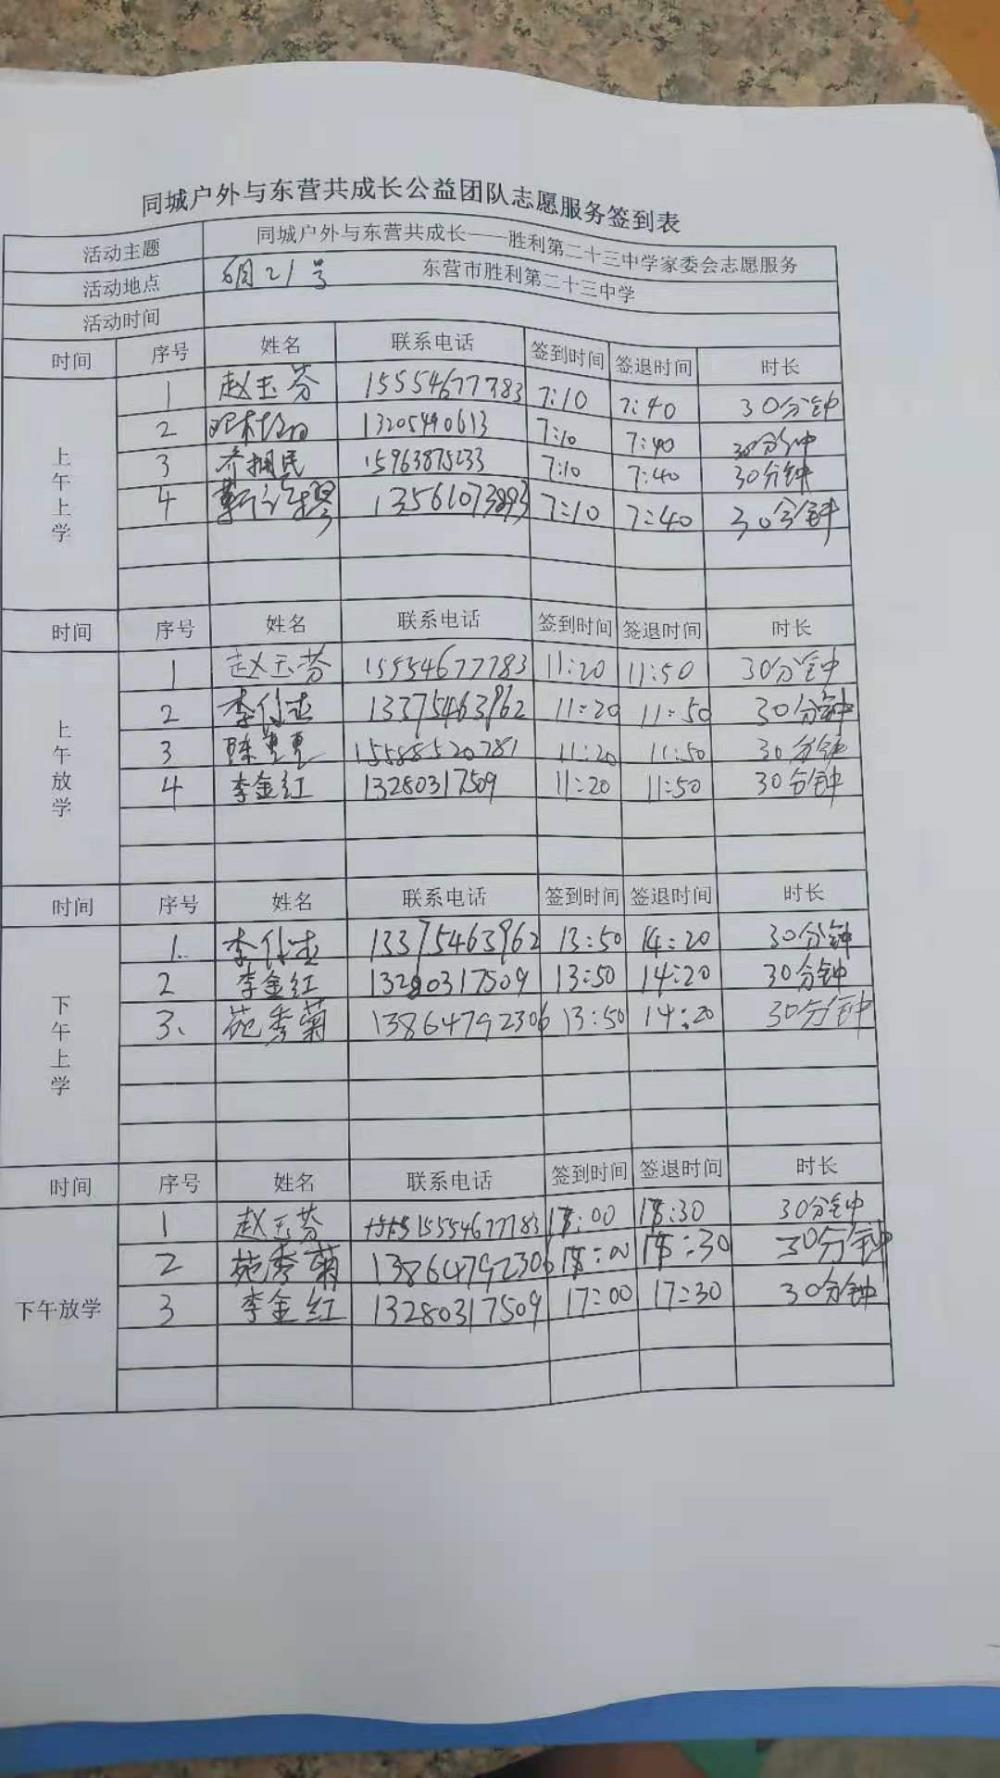 同城户外与东营共成长公益团队志愿服务签到表
活动主题 同城户外与东营共成长——胜利第二十三中学家委会志愿服务
活动地点 6月21号 东营市胜利第二十三中学
活动时间
时间 序号 姓名 联系电话 签到时间 签退时间 时长
上午上学
1 赵玉芬 15554677783 7:10 7:40 30分钟
2 13205440613 7:10 7:40 30分钟
3 齐拥民 15963875233 7:10 7:40 30分钟
4 13561073893 7:10 7:40 30分钟
时间 序号 姓名 联系电话 签到时间 签退时间 时长
上午放学
1 赵玉芬 15554677783 11:20 11:50 30分钟
2 李 13375463962 11:20 11:50 30分钟
3 陈 15585520781 11:20 11:50 30分钟
4 李金红 13280317509 11:20 11:50 30分钟
时间 序号 姓名 联系电话 签到时间 签退时间 时长
下午上学
1. 李 13375463962 13:50 14:20 30分钟
2 李金红 13280317509 13:50 14:20 30分钟
3、 苑秀菊 13864792306 13:50 14:20 30分钟
时间 序号 姓名 联系电话 签到时间 签退时间 时长
下午放学
1 赵玉芬 15554677783 17:00 17:30 30分钟
2 苑秀菊 13864792306 17:00 17:30 30分钟
3 李金红 13280317509 17:00 17:30 30分钟